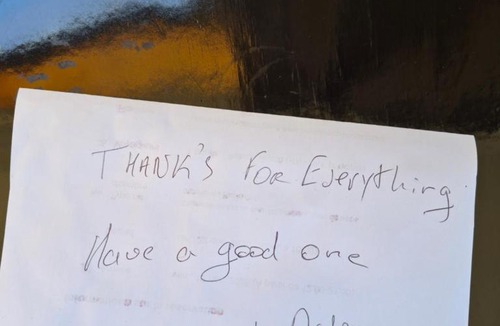 THANK'S FOR Everything
Have a good one